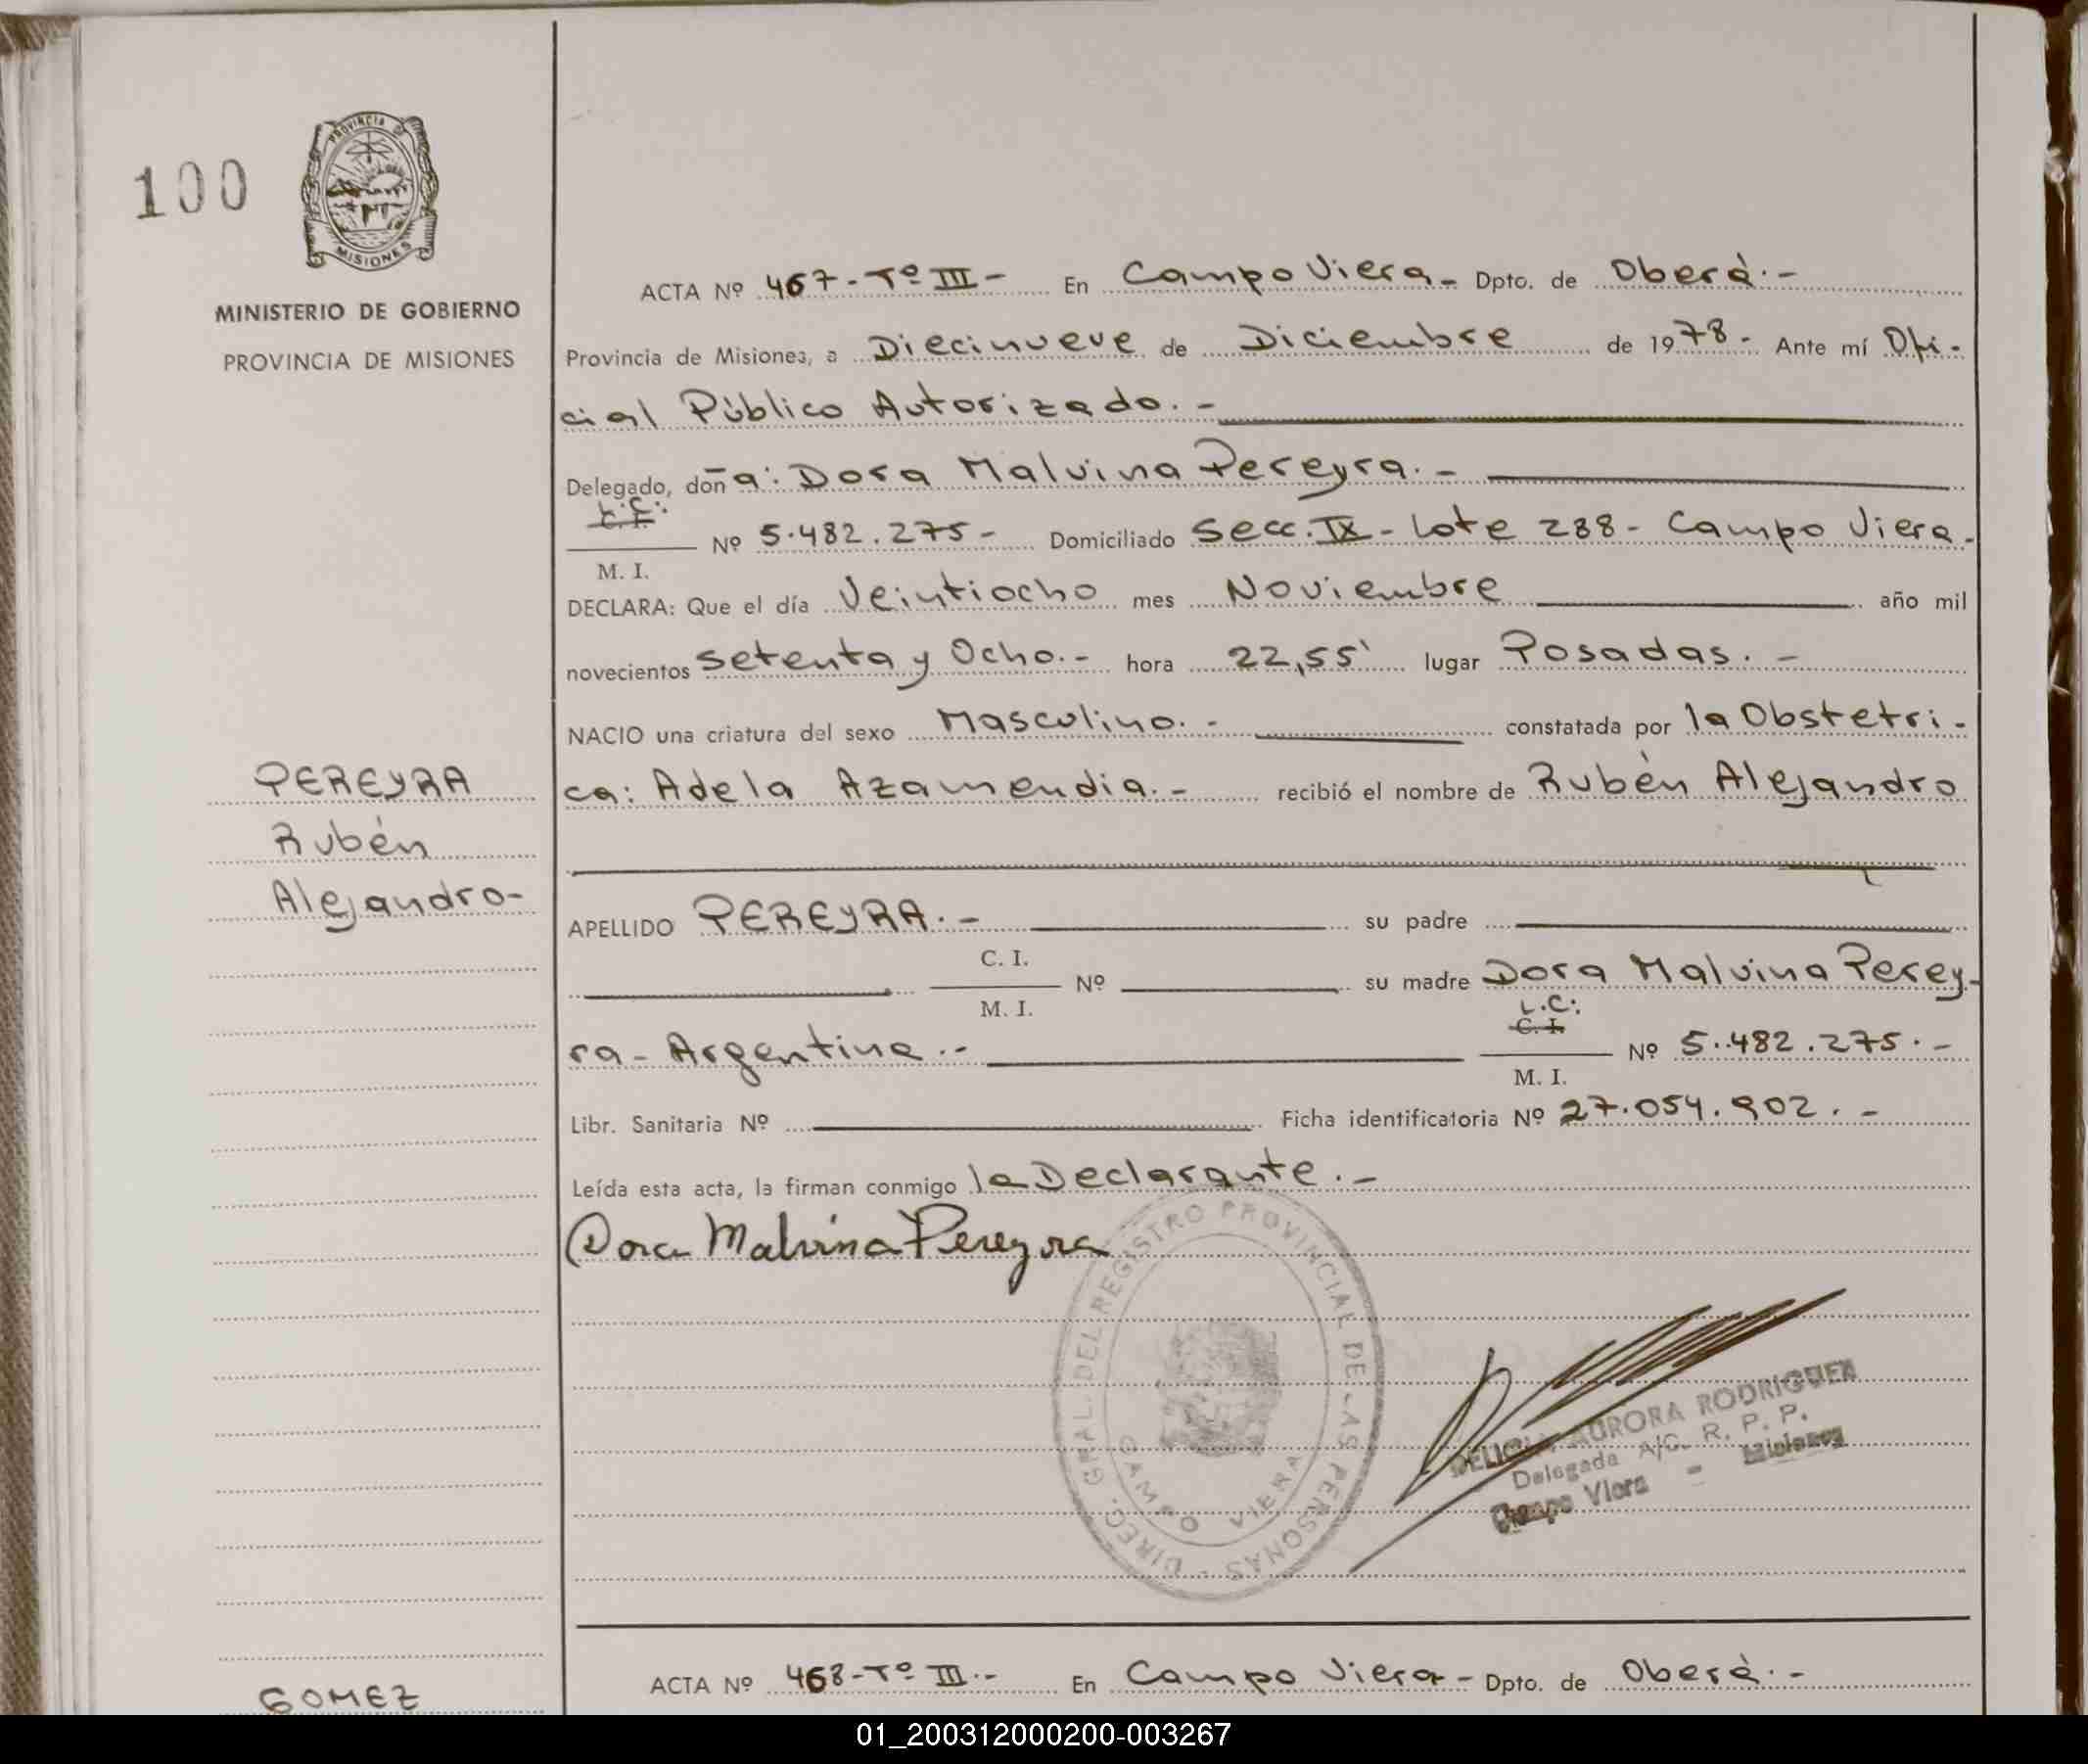 100
PROVINCIA DE
MISIONES
MINISTERIO DE GOBIERNO
PROVINCIA DE MISIONES
ACTA Nº 467-Tº III- En Campo Viera- Dpto. de Oberá.-
Provincia de Misiones, a Diecinueve de Diciembre de 1978- Ante mí Ofi-
cial Público Autorizado.-
Delegado, doña: Dora Malvina Pereyra.-
L.C:
C. I.
Nº 5.482.275- Domiciliado Secc. IX- Lote 288- Campo Viera-
M. I.
DECLARA: Que el día Veintiocho mes Noviembre año mil
novecientos setenta y Ocho.- hora 22,55' lugar Posadas.-
NACIO una criatura del sexo Masculino.- constatada por la Obstetri-
ca: Adela Azamendia.- recibió el nombre de Rubén Alejandro
PEREYRA
Rubén
Alejandro-
APELLIDO PEREYRA.- su padre
C. I.
Nº su madre Dora Malvina Perey-
M. I.
L.C:
C. I.
ra- Argentina.- Nº 5.482.275.-
M. I.
Libr. Sanitaria Nº Ficha identificatoria Nº 27.054.902.-
Leída esta acta, la firman conmigo la Declarante.-
Dora Malvina Pereyra
DIREC. GRAL. DEL REGISTRO PROVINCIAL DE LAS PERSONAS -
CAMPO VIERA
DELICIA AURORA RODRIGUEZ
Delegada A/C. R. P. P.
Campo Viera - Misiones
ACTA Nº 468-Tº III.- En Campo Viera- Dpto. de Oberá.-
GOMEZ
01_200312000200-003267